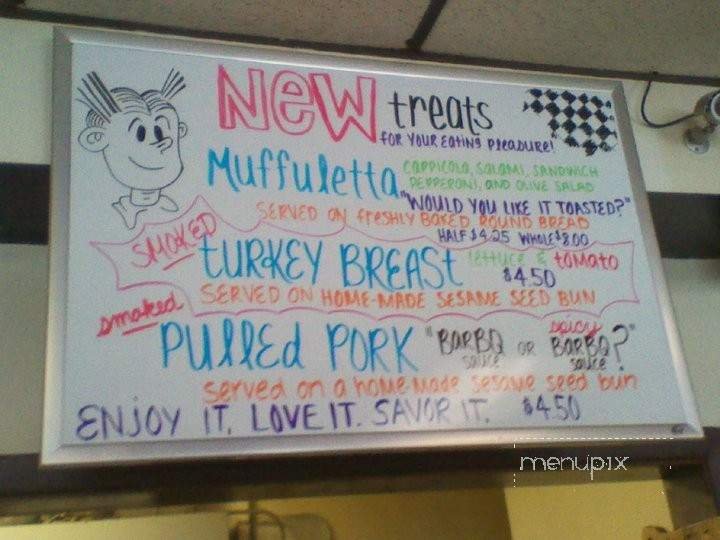 NEW treats
FOR YOUR EATING PLEASURE!
Muffuletta
CAPPICOLA, SALAMI, SANDWICH
PEPPERONI, AND OLIVE SALAD
"WOULD YOU LIKE IT TOASTED?"
SERVED ON FRESHLY BAKED ROUND BREAD
HALF $4.25 WHOLE $8.00
SMOKED
TURKEY BREAST lettuce & tomato
$4.50
SERVED ON HOME-MADE SESAME SEED BUN
smoked
PULLED PORK "BARBQ sauce OR spicy BARBQ sauce?"
served on a home-made sesame seed bun
ENJOY IT. LOVE IT. SAVOR IT. $4.50
menupix